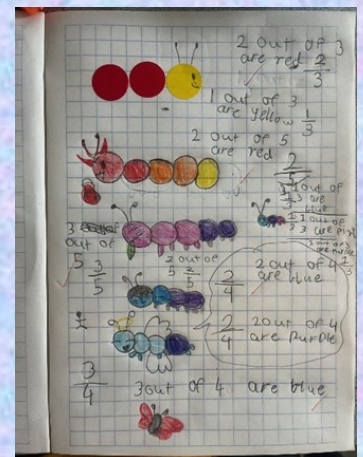 2 out of 3
are red 2/3
1 out of 3
are yellow 1/3
2 out of 5
are red
2/5
1 out of
3 are
blue
3
out of
5 3/5
2 out of
5 2/5
2/4 2 out of 4
are blue
2/4 2 out of 4
are purple
3/4 3 out of 4 are blue